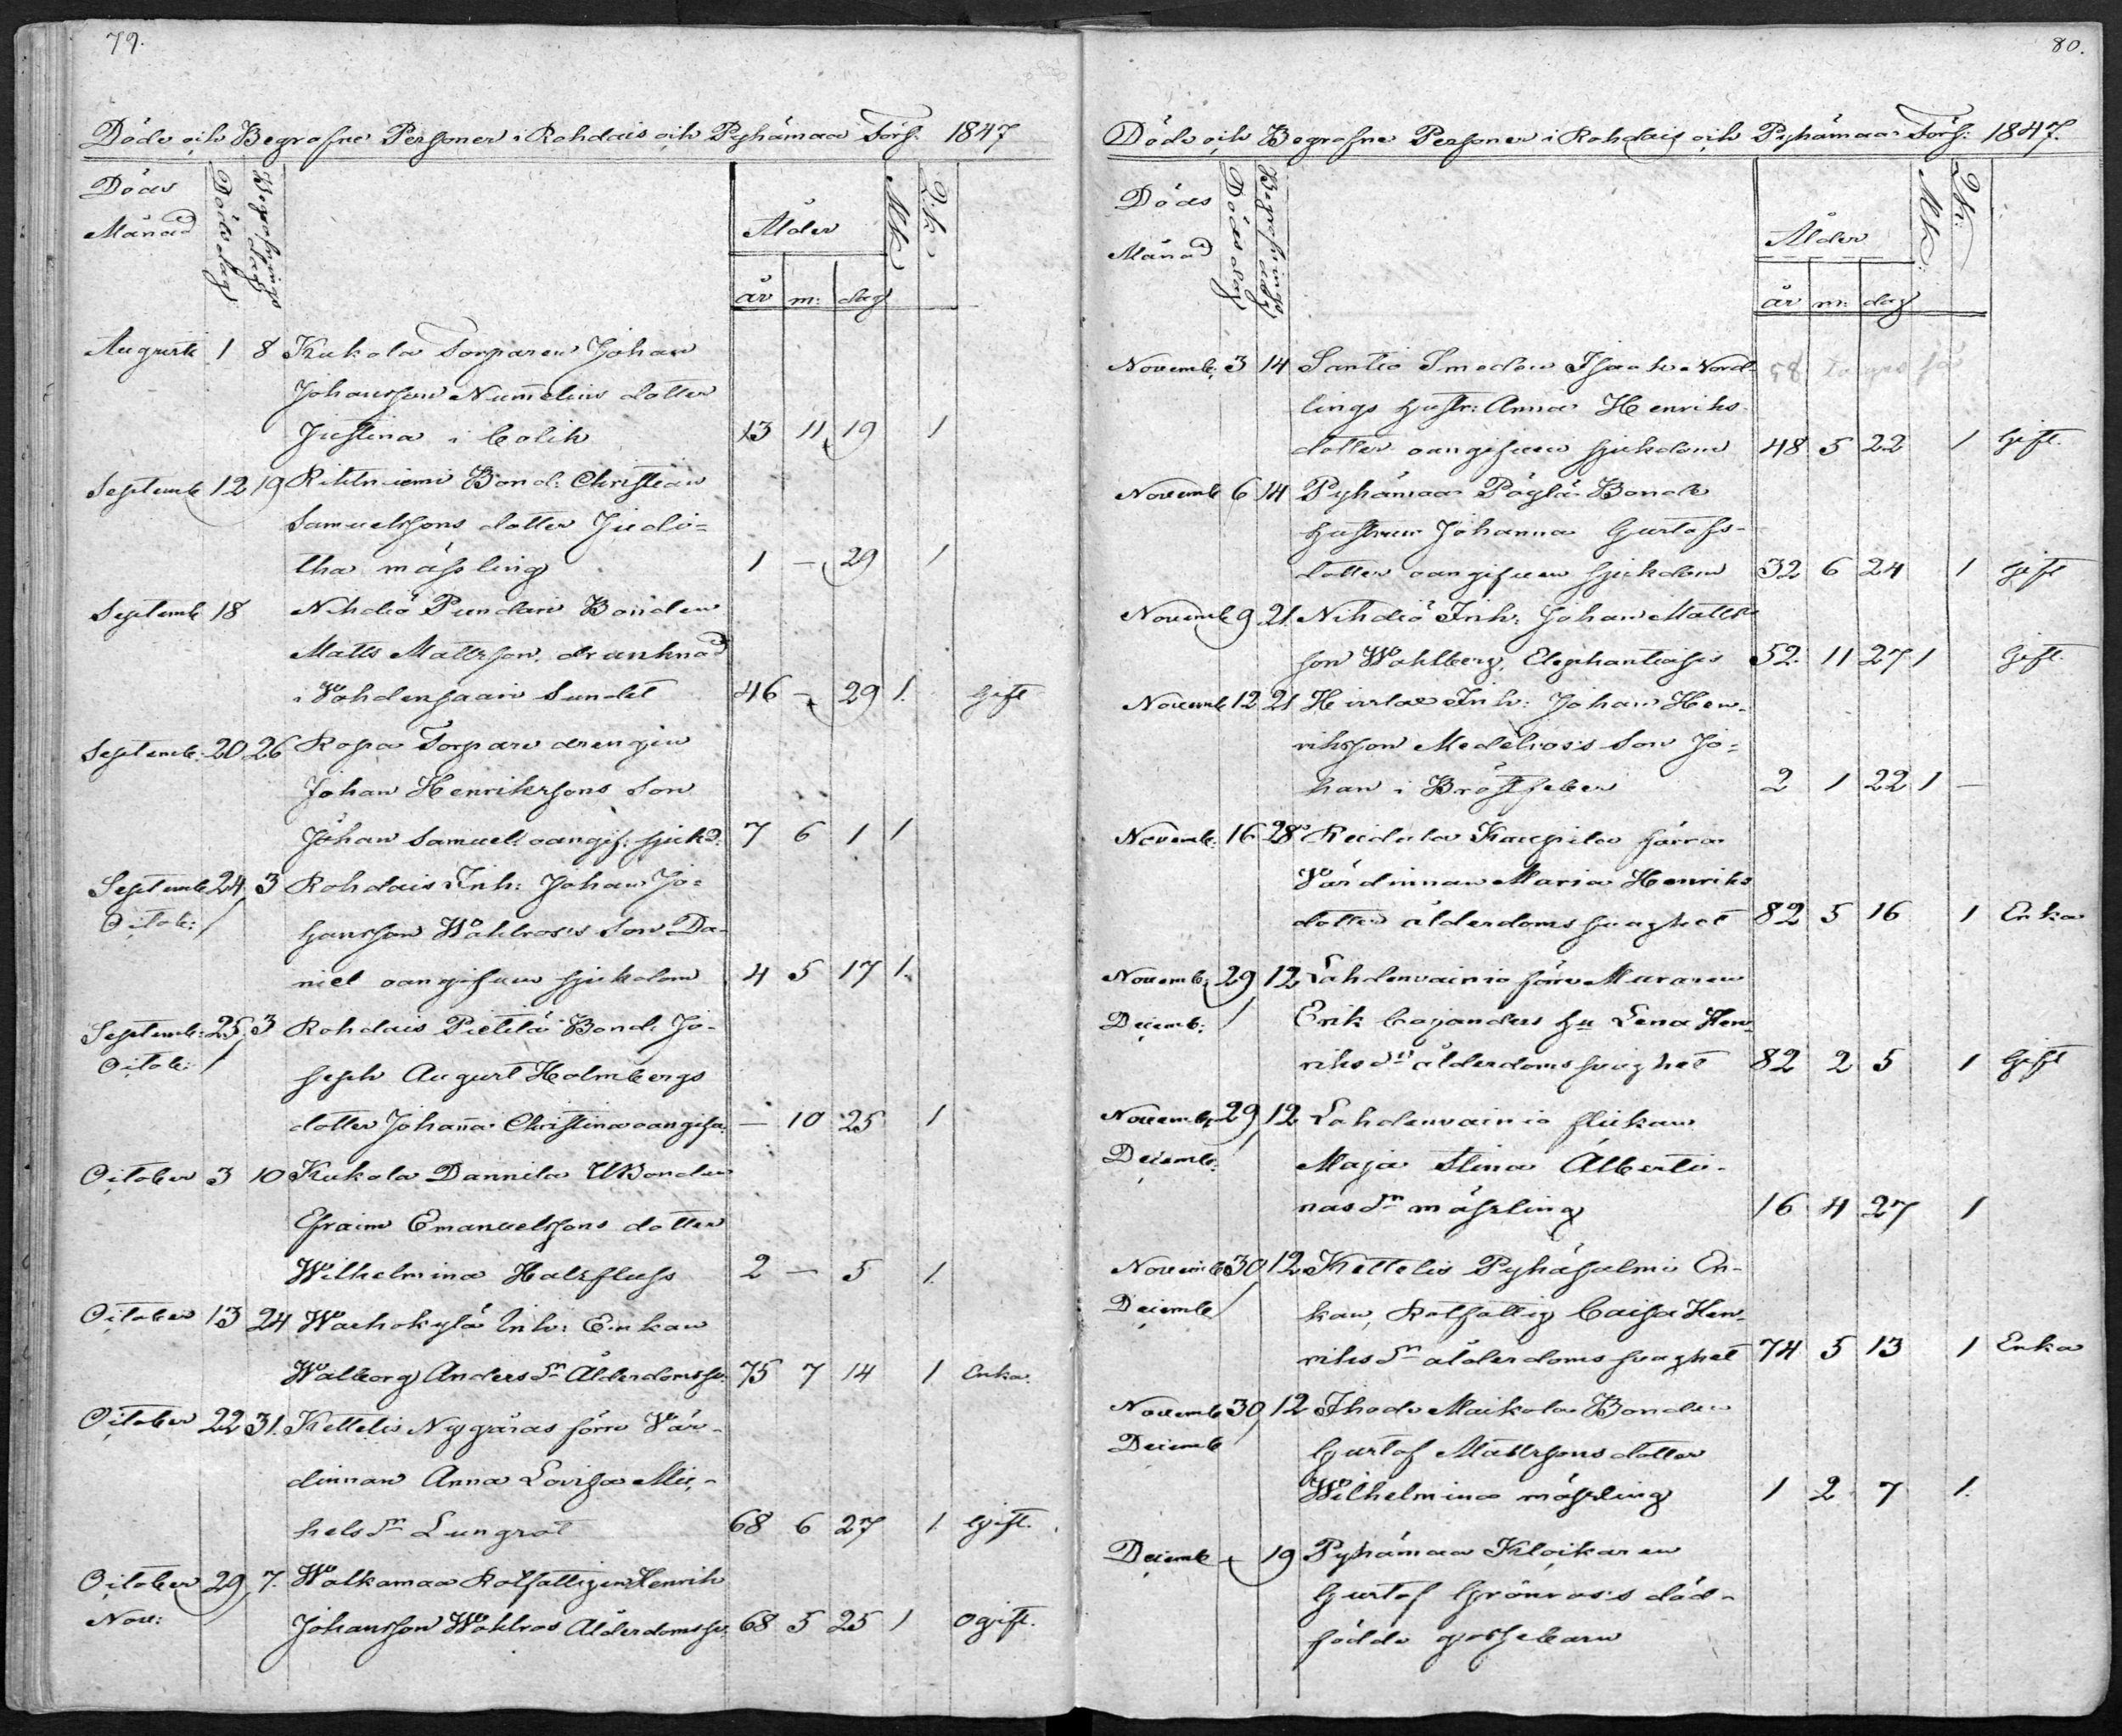 79.
Döde och Begrafne Personer i Rohdais och Pyhämaa Förs: 1847
Döds Månad
Döds dag
Begrafnings dag
Ålder
år m: dag
Mk
Qk
Augusti 1 8 Kukola Torparen Johan
Johansson Num̅elins dotter
Justina i Colik 13 11 19 1
Septemb 12 19 Rihtniemi Bond: Christian
Samuelssons dotter Judi=
tha mässling 1 — 29 1
Septemb 18 Nihdiö Pundari Bonden
Matts Mattsson, drunknad
i Vohdensaari Sundet 46 - 29 1. Gift
Septemb: 20 26 Ropa Torpare drengen
Johan Henrikssons Son
Johan Samuel: oangif: sjukd: 7 6 1 1
Septemb 24 3 Rohdais Inh: Johan Jo=
Octob: / hansson Wahlros's Son Da-
niel oangifven sjukdom 4 5 17 1.
Septemb: 25 3 Rohdais Pietilä Bond: Jo-
Octob: / seph August Holmbergs
dotter Johan̅a Christina oangifv: — 10 25 1
October 3 10 Kukola Dannila UBonden
Efraim Emanuelssons dotter
Wilhelmina Halsfluss 2 — 5 1.
October 13 24 Wachokylä Inh: Enkan
Walborg Anders dr Ålderdomssv: 75 7 14 1 Enka.
October 22 31. Kettelis Nygåras förre Vär-
dinnan Anna Lovisa Mic-
hels dr Lungrot 68 6 27 1. Gift.
October 29 7. Walkamaa Rotfattigen Henrik
Nov: Johansson Wahlros Ålderdomssv: 68 5 25 1 Ogift.
80.
Döde och Begrafne Personer i Rohdais och Pyhämaa Förs: 1847.
Döds Månad
Döds dag
Begrafnings dag
Ålder
år m: dag
Mk:
Qk:
Novemb: 3 14 Santio Smeden Isaak Nord-
lings hustr: Anna Henriks
dotter oangifven sjukdom 48 5 22 1 Gift.
Novemb 6 14 Pyhämaa Päylä Bonde
hustrun Johanna Gustafs-
dotter oangifven sjukdom 32 6 24 1 Gift
Novemb 9 21. Nihdiö Inh: Johan Matts
son Wahlberg, Elephantiasis 52. 11 27 1 Gift.
Novemb 12 21 Heislax Inh: Johan Hen-
riksson Medelros's Son Jo=
han i Bröstfeber 2 1 22 1 —
Novemb: 16 28 Reidula Kaupila förra
Värdinnan Maria Henriks
dotter ålderdoms svaghet 82 5 16 1 Enka
Novemb: 29 12 Lahdenvainio förre Muraren
Decemb: / Erik Cajanders hu Lena Hen-
riks dr ålderdoms svaghet 82 2 5 1 Gift
Novemb 29 12 Lahdenvainio flickan
Decemb: Maja Stina Alberti-
nas dr mässling 16 4 27 1
Novemb 30 12 Kettelis Pyhäsalmi En-
Decemb / kan, Rotfattig Caisa Hen-
riks dr ålderdoms svaghet 74 5 13 1 Enka
Novemb 30 12 Ihode Maikola Bonden
Decemb Gustaf Mattssons dotter
Wilhelmina mässling 1 2 7 1.
Decemb - 19 Pyhämaa Klockaren
Gustaf Grönros's död-
födde gossebarn